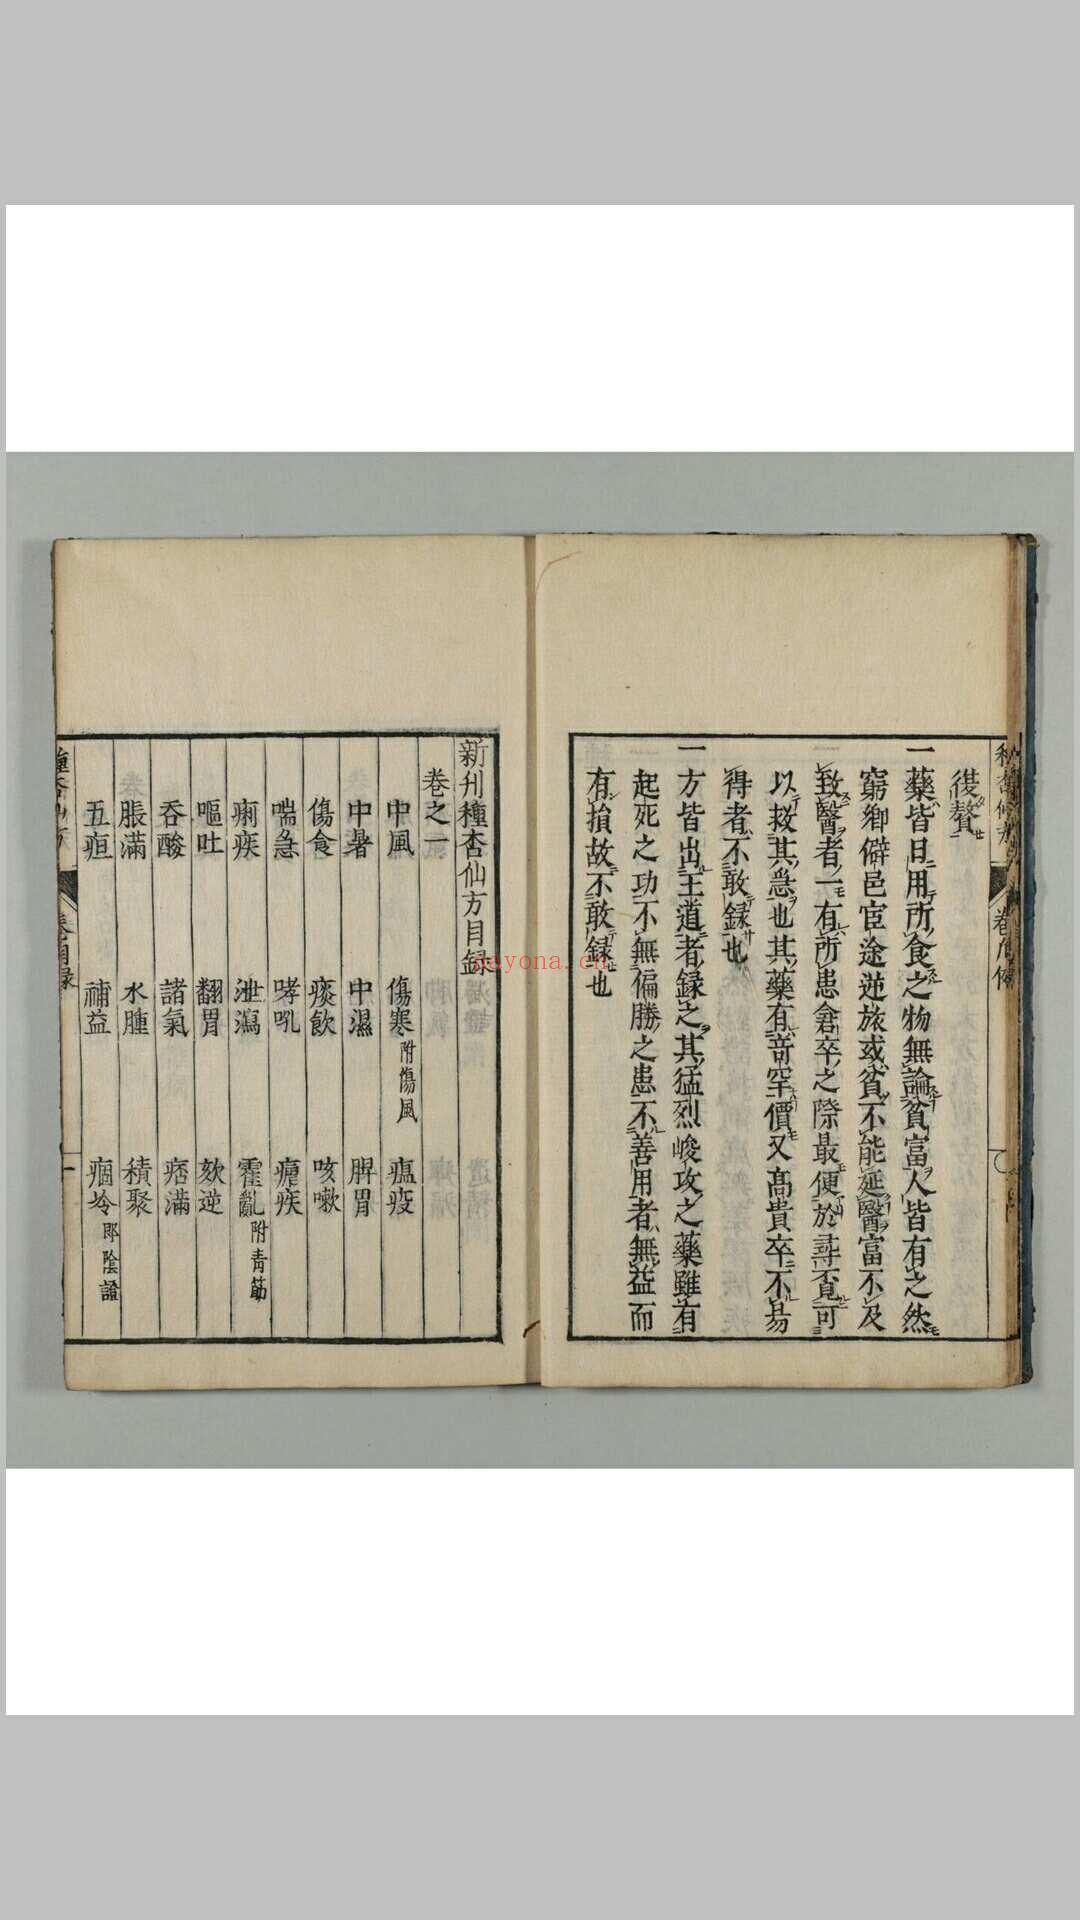 後贅
一藥皆日用所食之物無論貧富人皆有之然
窮鄉僻邑宦途逆旅或貧不能延醫富不及
致醫者一有所患倉卒之際最便於尋覓可
以救其急也其藥有奇罕價又髙貴卒不易
得者不敢録也
一方皆出王道者録之其猛烈峻攻之藥雖有
起死之功不無偏勝之患不善用者無益而
有損故不敢録也
新刊種杏仙方目録
卷之一
中風 傷寒附傷風 瘟疫
中暑 中濕 脾胃
傷食 痰飲 咳嗽
喘急 哮吼 瘧疾
痢疾 泄瀉 霍亂附青筋
嘔吐 翻胃 欬逆
吞酸 諸氣 痞滿
脹滿 水腫 積聚
五疸 補益 痼冷即陰證
種杏仙方 卷目録 一
neyona.cn